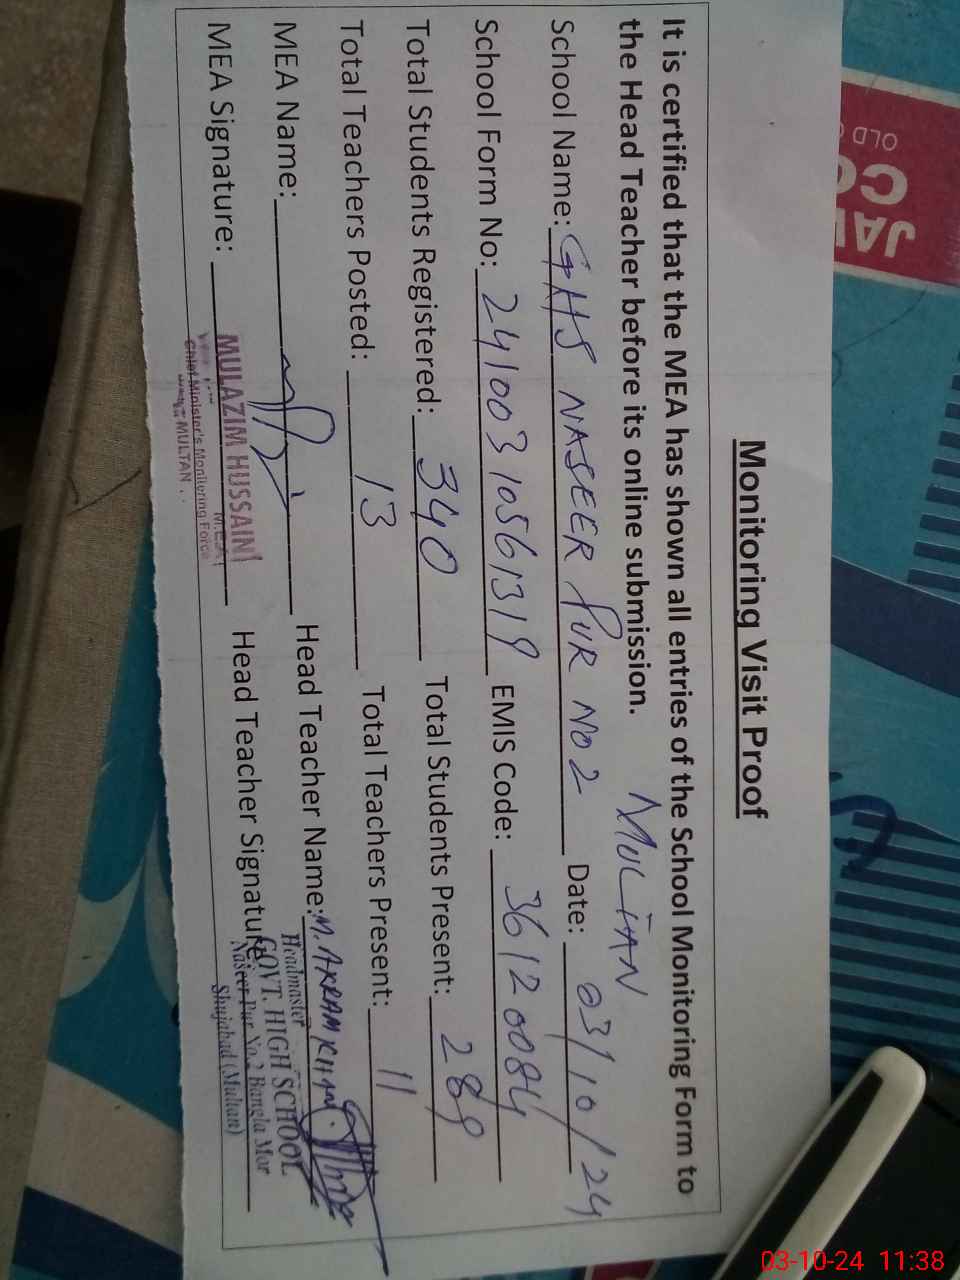 Monitoring Visit Proof
It is certified that the MEA has shown all entries of the School Monitoring Form to
the Head Teacher before its online submission.
MULTAN
School Name: GHS NASEER PUR NO 2 Date: 03/10/24
School Form No: 24100310561319 EMIS Code: 36120084
Total Students Registered: 340 Total Students Present: 289
Total Teachers Posted: 13 Total Teachers Present: 11
MEA Name: Head Teacher Name: M. AKRAM KHAN
MEA Signature: Head Teacher Signature:
MULAZIM HUSSAIN
M.E.A
Chief Minister's Monitoring Force
MULTAN
Headmaster
GOVT. HIGH SCHOOL
Naseer Pur No.2 Bangla Mor
Shujabad (Multan)
OLD
CO
JA
03-10-24 11:38